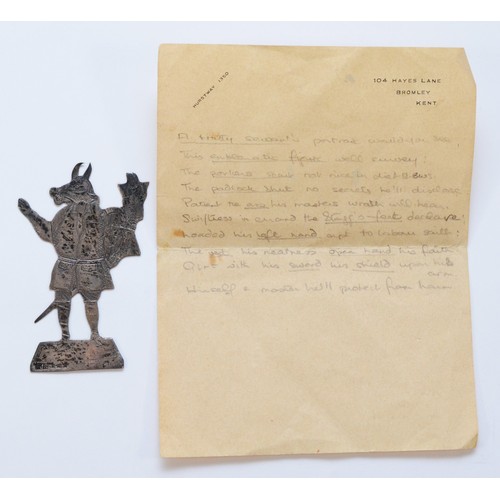 HURSTWAY 1330
104 HAYES LANE
BROMLEY
KENT
A trusty servant's portrait would you see,
This emblematic figure well survey:
The porkers snout not nice in diet shows:
The padlock shut no secrets he'll disclose
Patient the ass his masters wrath will bear.
Swiftness in errand the Stagg's feet declare:
Loaded his left hand apt to labour saith:
The his neatness open hand his faith
Girt with his sword his shield upon his
arm
Himself & master he'll protect from harm